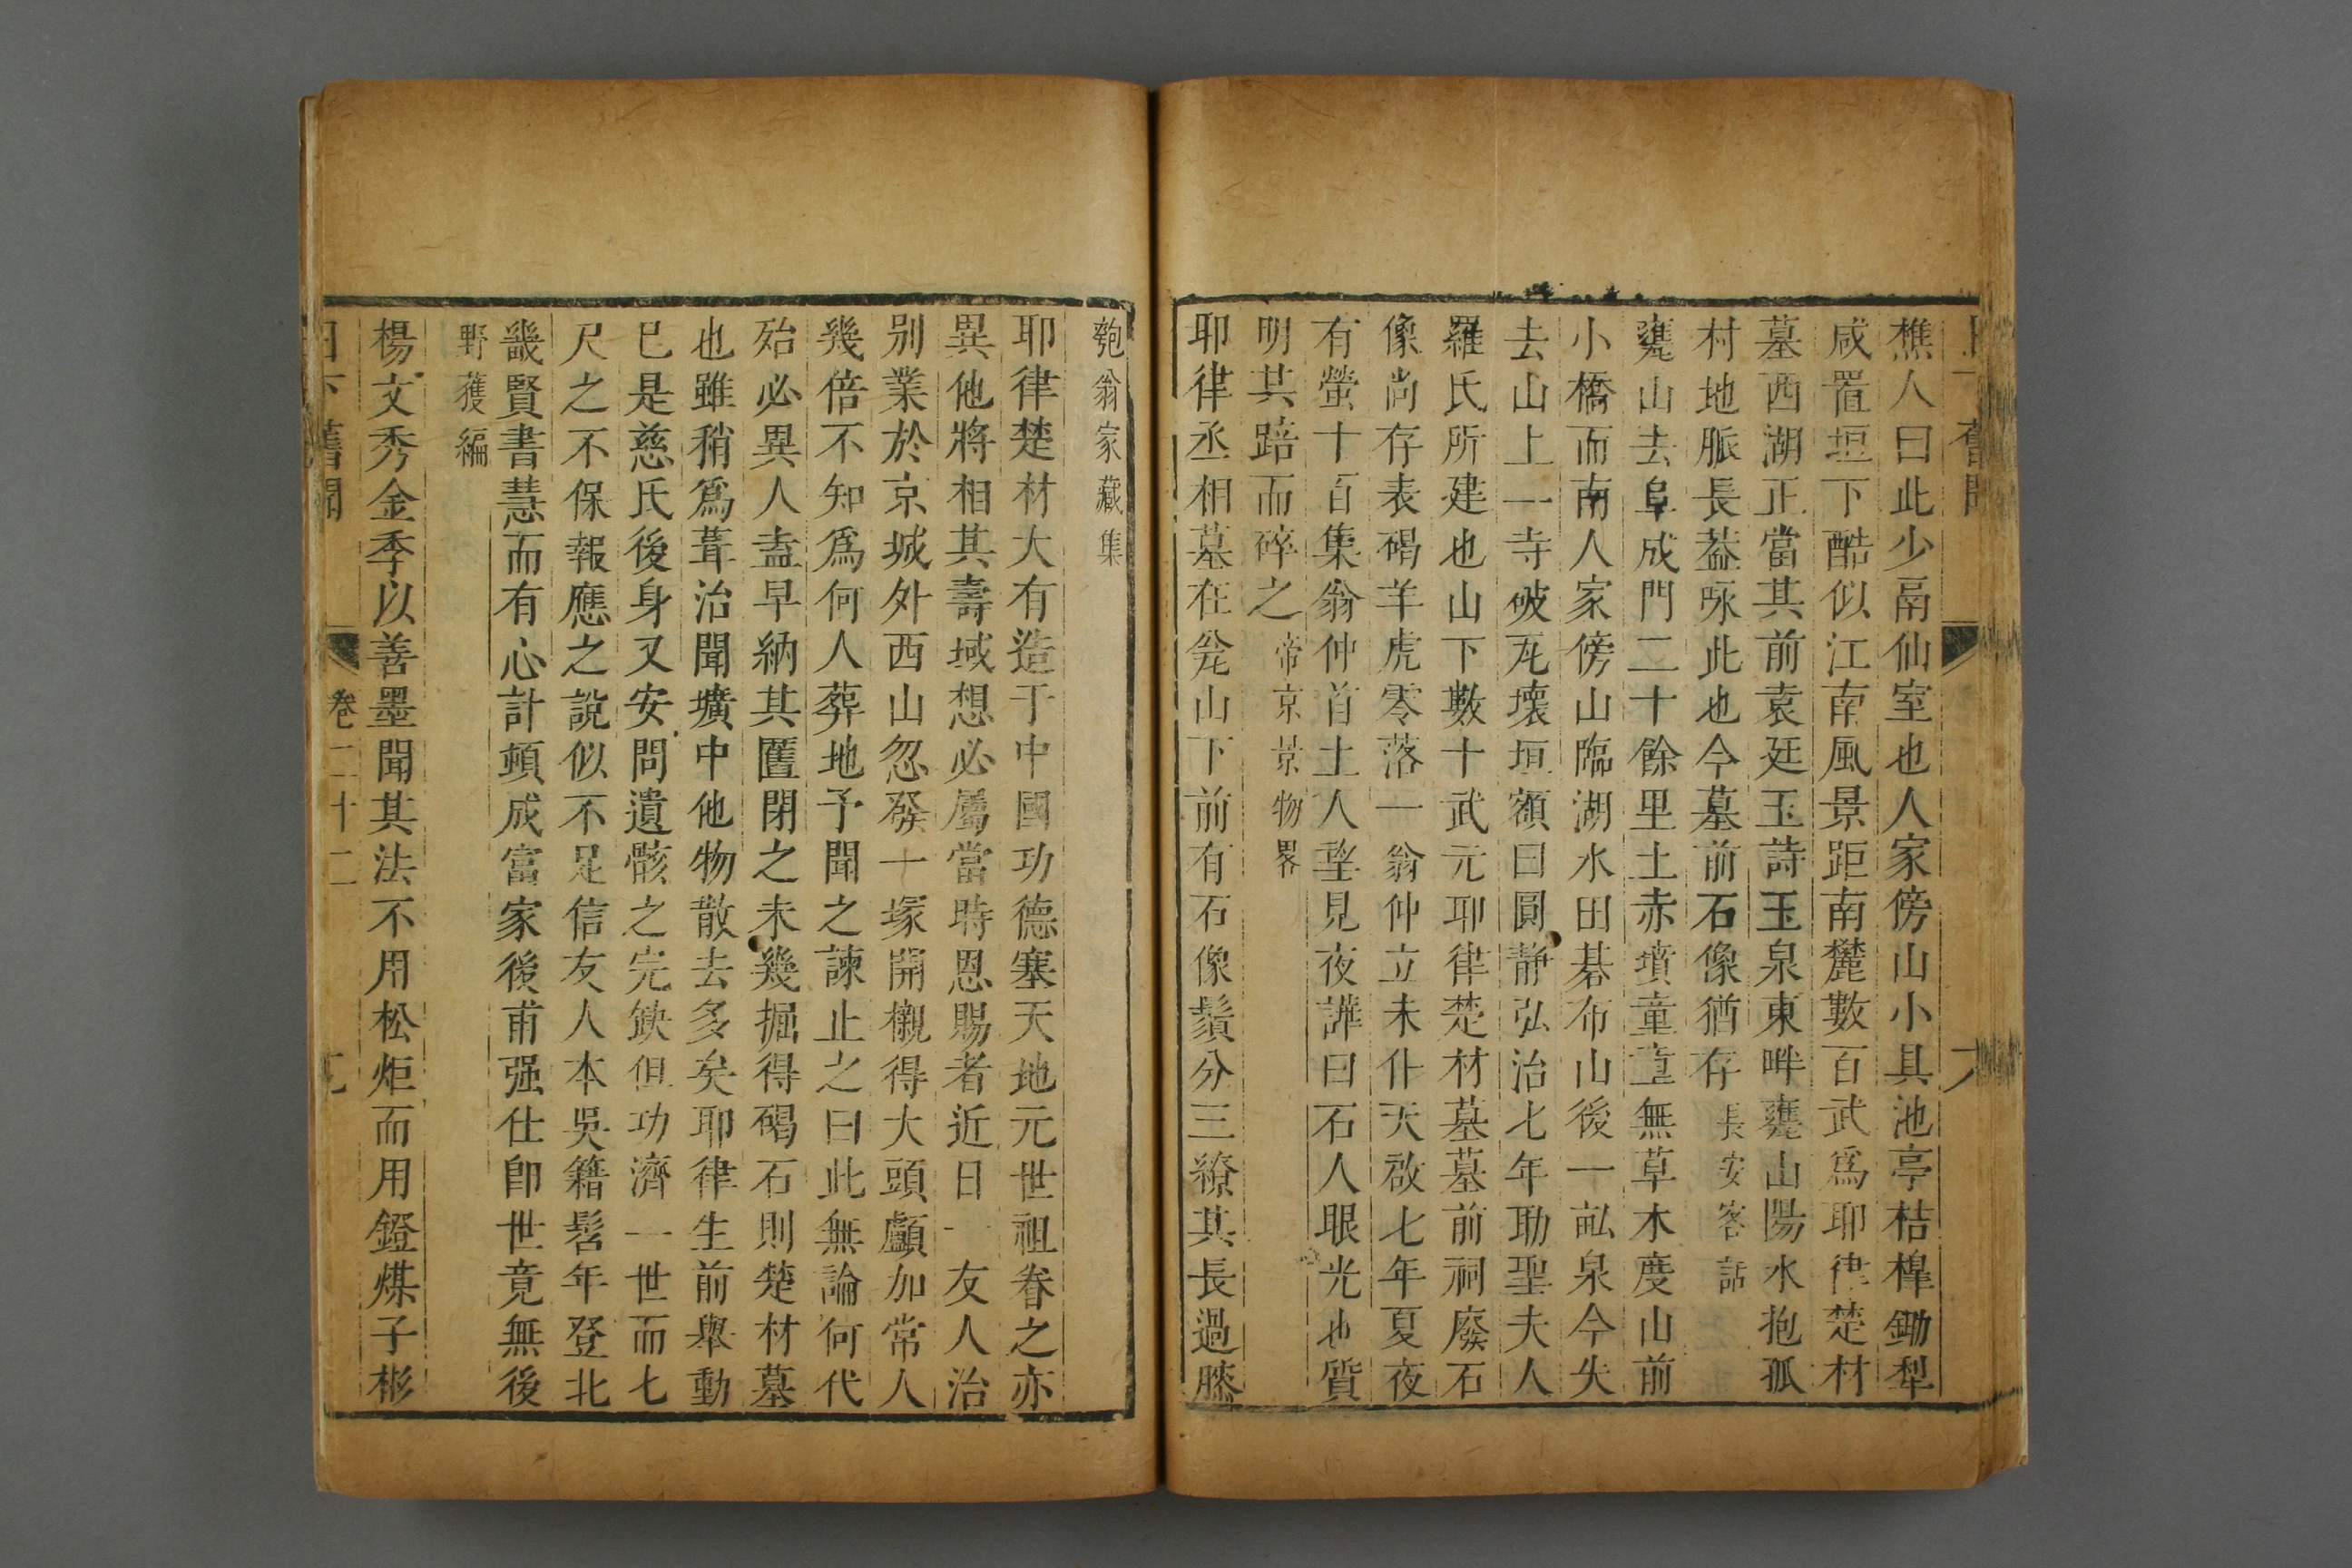 樵人曰此少鬲仙室也人家傍山小具池亭桔槹鋤犁
咸置垣下酷似江南風景距南麓數百武爲耶律楚材
墓西湖正當其前袁廷玉詩玉泉東畔甕山陽水抱孤
村地脈長葢咏此也今墓前石像猶存長安客話
甕山去阜成門二十餘里土赤墳童童無草木度山前
小橋而南人家傍山臨湖水田碁布山後一畆泉今失
去山上一寺破瓦壞垣額曰圓静弘治七年助聖夫人
羅氏所建也山下數十武元耶律楚材墓墓前祠廢石
像尚存表碣羊虎零落一翁仲立未仆天啟七年夏夜
有螢十百集翁仲首土人望見夜譁曰石人眼光也質
明共踣而碎之帝京景物畧
耶律丞相墓在瓮山下前有石像鬚分三繚其長過膝
匏翁家藏集
耶律楚材大有造于中國功德塞天地元世祖眷之亦
異他將相其壽域想必屬當時恩賜者近日一友人治
别業於京城外西山忽發一塚開櫬得大頭顱加常人
幾倍不知爲何人葬地予聞之諫止之曰此無論何代
殆必異人盍早納其匶閉之未幾掘得碣石則楚材墓
也雖稍爲葺治聞壙中他物散去多矣耶律生前舉動
巳是慈氏後身又安問遺骸之完缺但功濟一世而七
尺之不保報應之說似不足信友人本吳籍髫年登北
畿賢書慧而有心計頓成富家後甫强仕卽世竟無後
野獲編
楊文秀金季以善墨聞其法不用松炬而用鐙煤子彬
日下舊聞 卷二十二